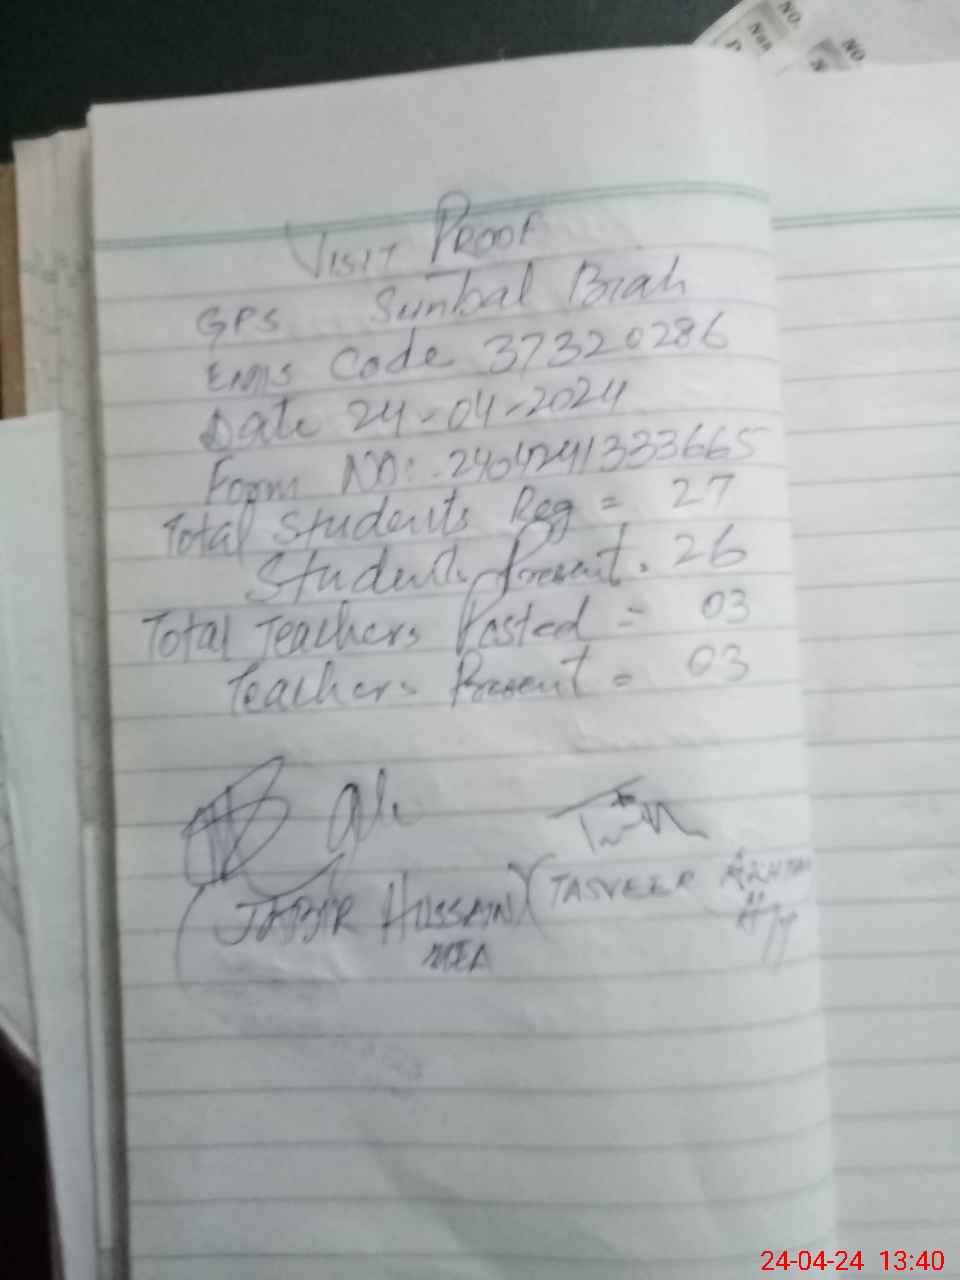 NO.
Nan
NO
N
VISIT PROOF
GPS Sunbal Biah
EMIS Code 37320286
Date 24-04-2024
Form NO: 2404241333665
Total Students Reg = 27
Students Present. 26
Total Teachers Posted = 03
Teachers Present = 03
(JABIR HUSSAIN) (TASVEER
MEA
24-04-24 13:40